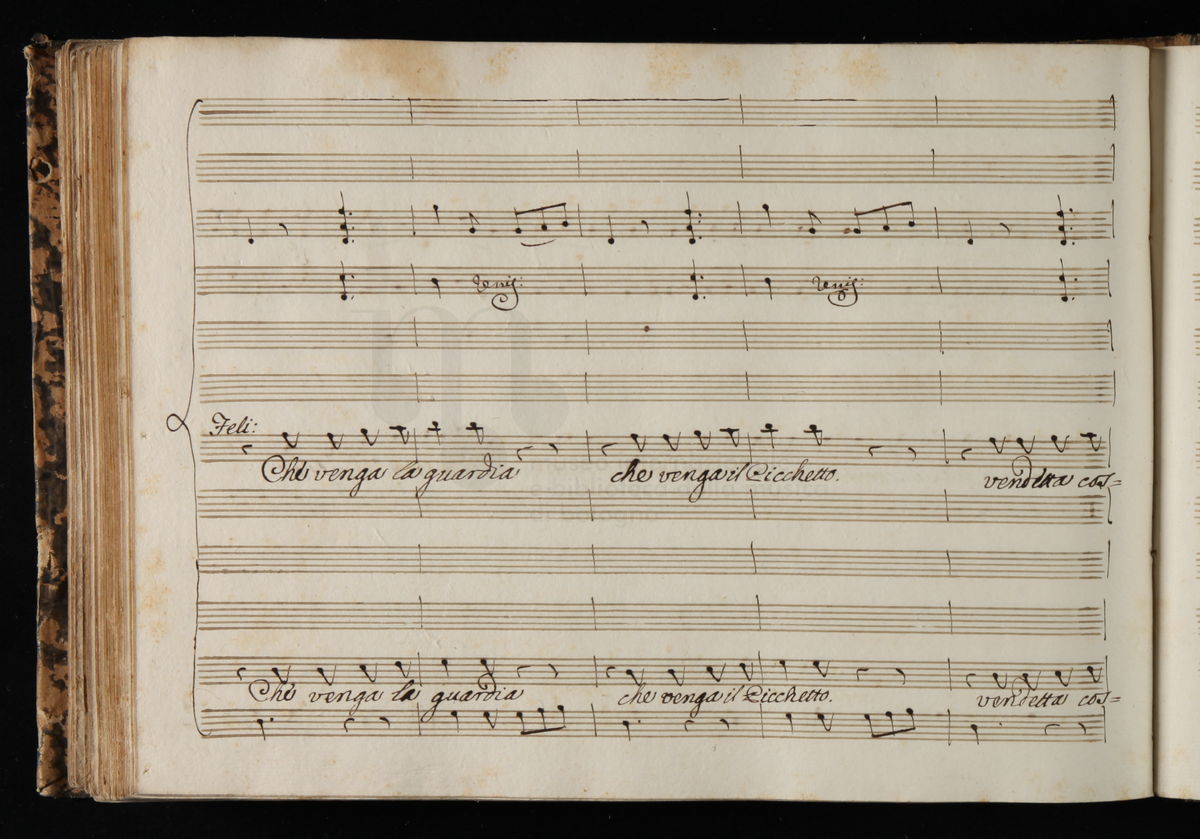 Unis:
Unis:
Feli:
Che venga la guardia che venga il Ricchetto. vendetta cos=
Che venga la guardia che venga il Ricchetto. vendetta cos=